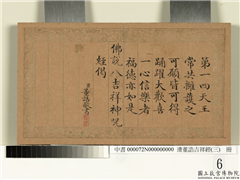 第一四天王
常共擁護之
可願皆可得
踊躍大歡喜
一心信樂者
福德亦如是
佛說八吉祥神咒
經偈
中書000072N000000000 清董誥吉祥經(三) 冊
6
國立故宮博物院